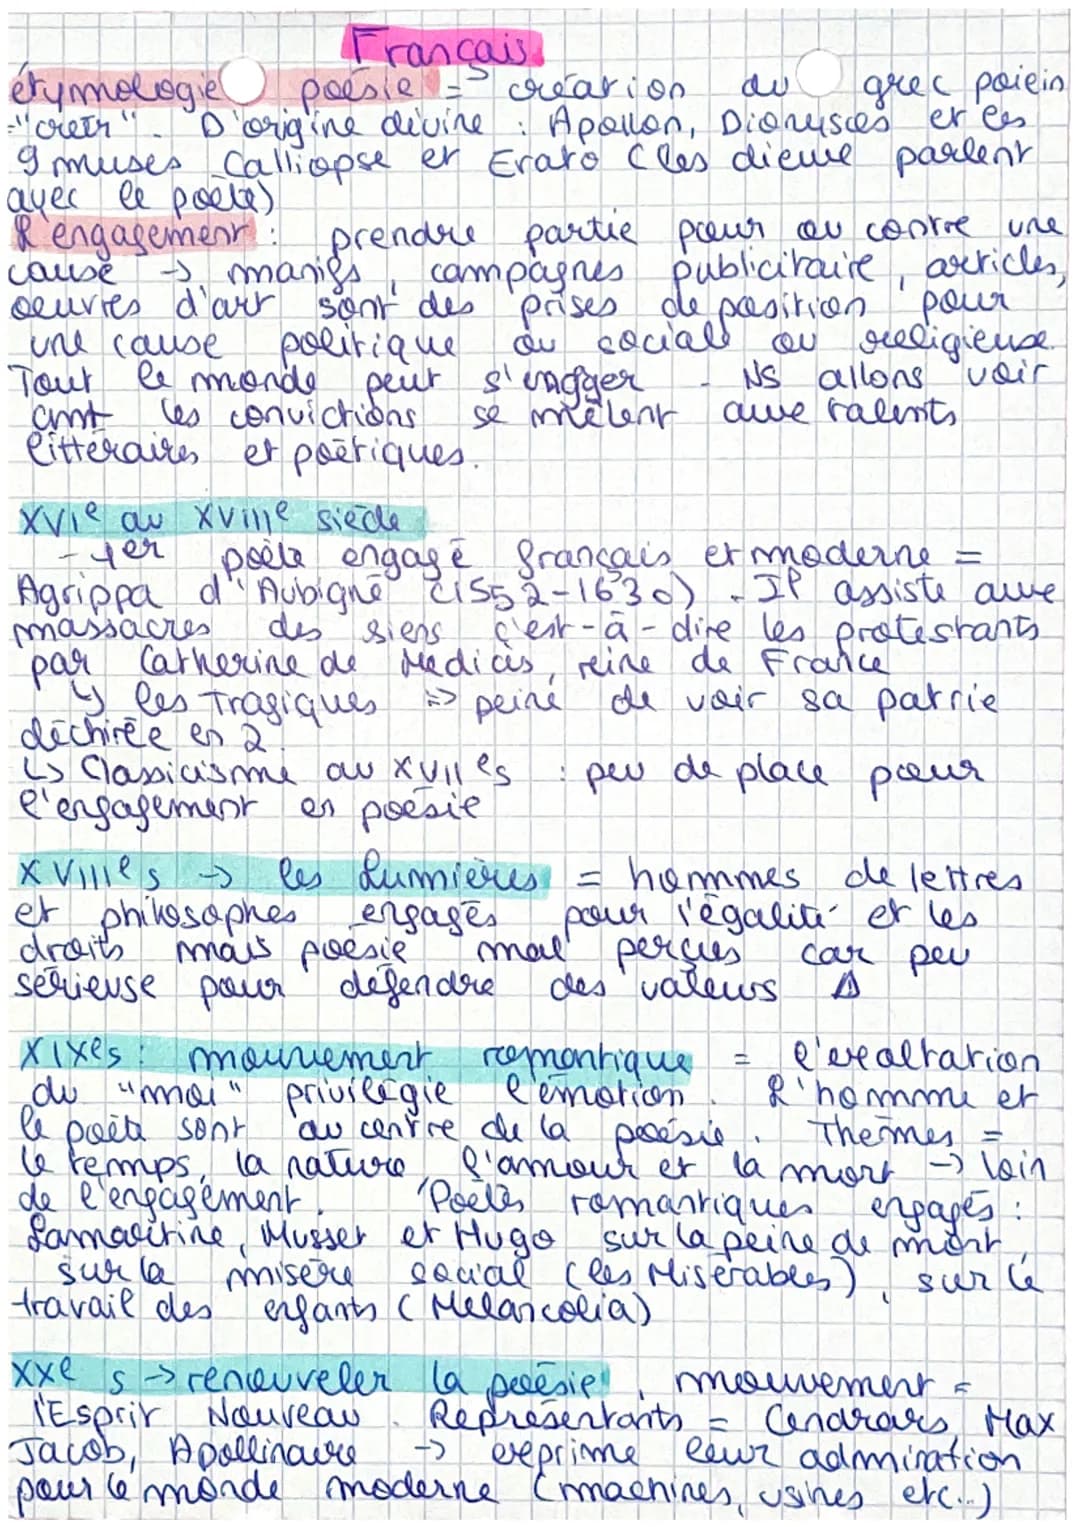 Français
étymologie poésie = création du grec poiein
="créer". D'origine divine : Apollon, Dionysos et les
9 muses Calliopse et Erato (les dieux parlent
avec le poète)
L'engagement : prendre partie pour ou contre une
cause → manifs, campagnes publicitaire, articles,
oeuvres d'art sont des prises de position pour
une cause politique ou sociale ou religieuse.
Tout le monde peut s'engager. NS allons voir
cmt les convictions se mêlent aux talents
littéraires et poétiques.
XVIe au XVIIIe siècle
- 1er poète engagé français et moderne =
Agrippa d'Aubigné (1552-1630). Il assiste aux
massacres des siens c'est-à-dire les protestants
par Catherine de Médicis, reine de France
↳ les Tragiques => peiné de voir sa patrie
déchirée en 2
↳ Classicisme au XVIIes : peu de place pour
l'engagement en poésie
XVIIIes → les Lumières = hommes de lettres
et philosophes engagés pour l'égalité et les
droits mais poésie mal perçues car peu
sérieuse pour défendre des valeurs
XIXes : mouvement romantique = l'exaltation
du "moi" privilégie l'émotion. L'homme et
le poète sont au centre de la poésie. Thèmes =
le temps, la nature, l'amour et la mort → loin
de l'engagement. Poètes romantiques engagés :
Lamartine, Musset et Hugo sur la peine de mort,
sur la misère social (les Misérables), sur le
travail des enfants (Melancolia)
XXe s → renouveler la poésie, mouvement =
l'Esprit Nouveau. Représentants = Cendrars, Max
Jacob, Apollinaire → exprime leur admiration
pour le monde moderne (machines, usines etc...)